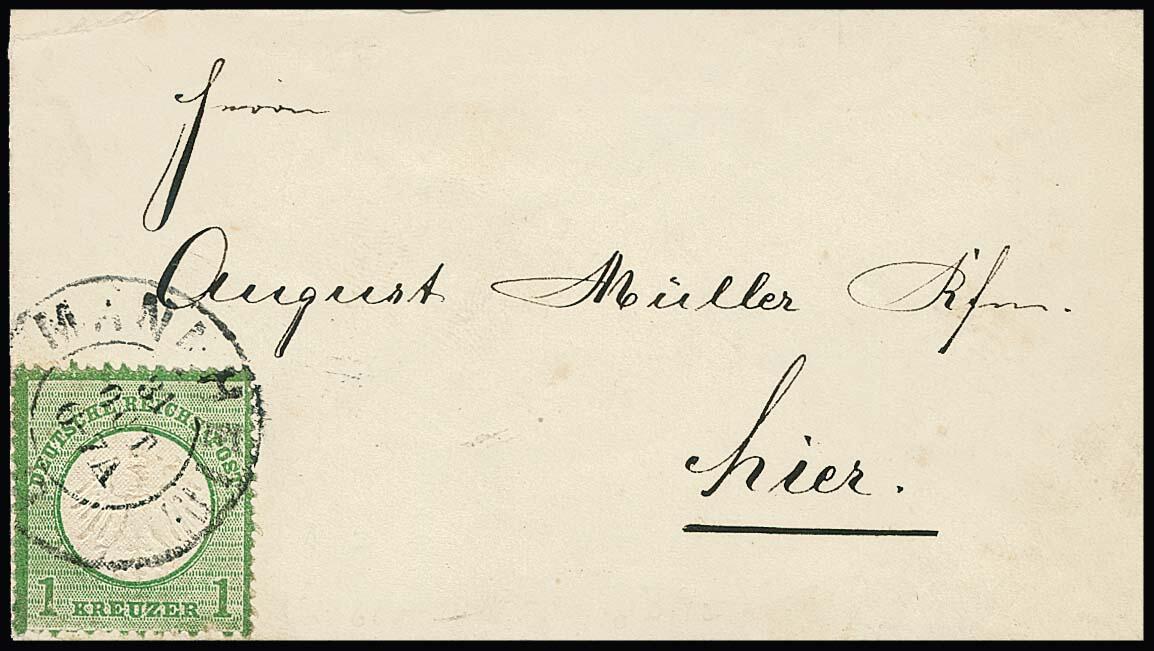 Herrn
August Müller Kfm.
hier.
DEUTSCHE REICHS POST
1 KREUZER 1